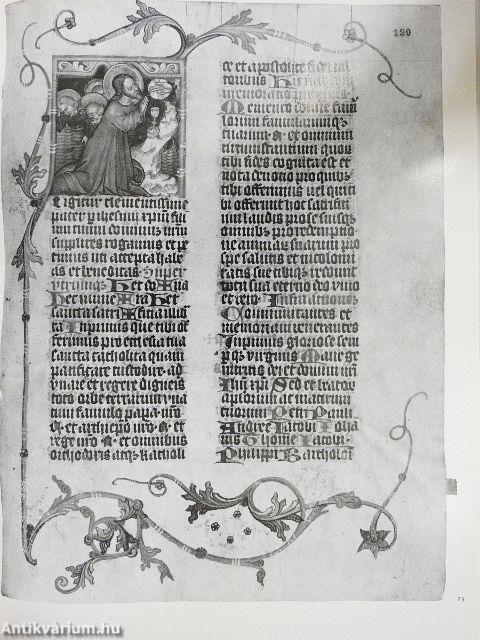 120
igitur clementissime
pater p ihesum xpm fili
um tuum dominum nrm
supplices rogamus et pe
timus uti accepta habe
as et benedicas Super
utrumqz Hec do✠na
hec mune✠ra hec
sancta sacri✠ficia illiba
ta Inprimis que tibi of
ferimus pro ecclesia tua
sancta catholica quam
pacificare custodire ad
unare et regere digneris
toto orbe terrarum una
cum famulo papa nro
N et archiepo nro N et
rege nro N et omnibus
orthodoxis atqz katholi
ce et apostolice fidei cul
toribus Hic
memoratio
Memento domine famu
lorum famularumqz
tuarum N et omnium
circumstantium quoru
tibi fides cognita est et
nota devotio pro quibz
tibi offerimus vel qui ti
bi offerunt hoc sacrifi
um laudis pro se suisqz
omnibz pro redemptio
ne animarum suarum pro
spe salutis et incolomi
tatis sue tibiqz reddunt
vota sua eterno deo vivo
et vero Infra actionem
Communicantes et
memoriam venerantes
Inprimis gloriose sem
per virginis Marie ge
nitricis dei et domini nri
Ihu xpi Sed et beator
aplorum ac martirum
tuorum Petri Pauli
Andree Iacobi Iohan
nis Thome Iacobi
Philippi Bartholom
Antikvárium.hu